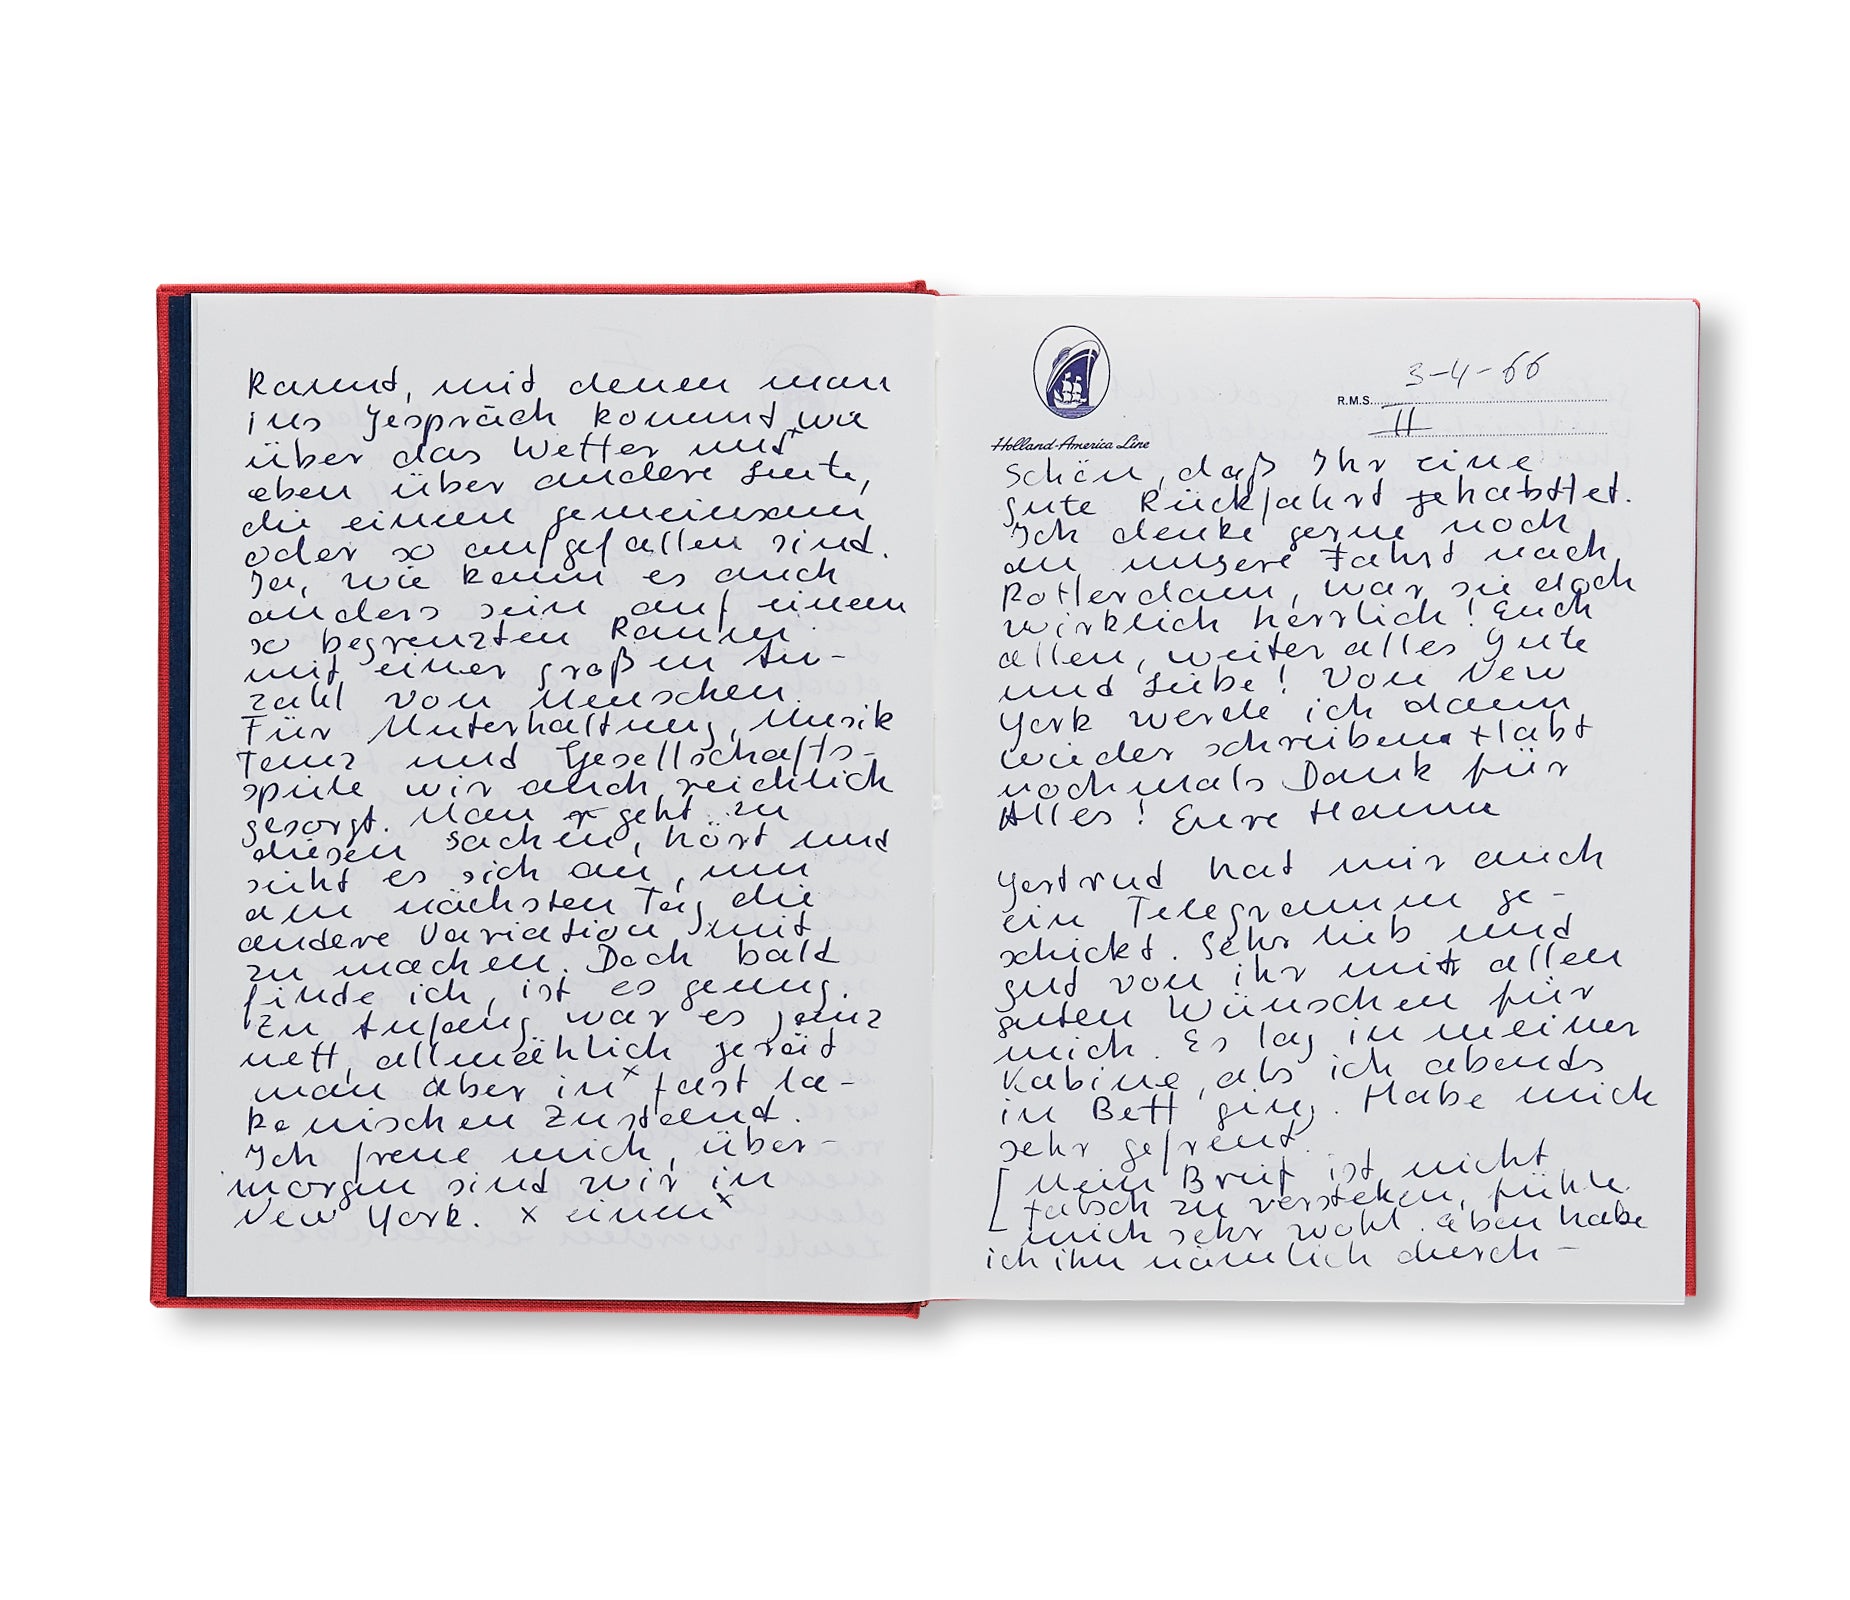 kannt, mit denen man
ins Gespräch kommt wie
über das Wetter und
eben über andere Leute,
die einem gemeinsam
oder so aufgefallen sind.
Ja, wie kann es auch
anders sein auf einem
so begrenzten Raum
mit einer großen An-
zahl von Menschen.
Für Unterhaltung, Musik
Tanz und Gesellschafts-
spiele wir auch reichlich
gesorgt. Man geht zu
diesen Sachen, hört und
sieht es sich an, um
am nächsten Tag die
andere Variation mit
zu machen. Doch bald
finde ich, ist es genug.
Zu Anfang war es ganz
nett, allmählich gerät
man aber in x fast la-
konischen Zustand.
Ich freue mich, über-
morgen sind wir in
New York. x einen x
Holland-America Line
3-4-66
R.M.S.
II
Schön, daß Ihr eine
gute Rückfahrt gehabt
Ich denke gerne noch
an unsere Fahrt nach
Rotterdam, war sie doch
wirklich herrlich! Euch
allen, weiter alles Gute
und Liebe! Von New
York werde ich dann
wieder schreiben. Habt
nochmals Dank für
Alles! Eure Hanne
Gertrud hat mir auch
ein Telegramm ge-
schickt. Sehr lieb und
gut von ihr mit allen
guten Wünschen für
mich. Es lag in meiner
Kabine, als ich abends
in Bett ging. Habe mich
sehr gefreut.
[Mein Brief ist nicht
falsch zu verstehen, fühle
mich sehr wohl. Eben habe
ich ihn nämlich durch-